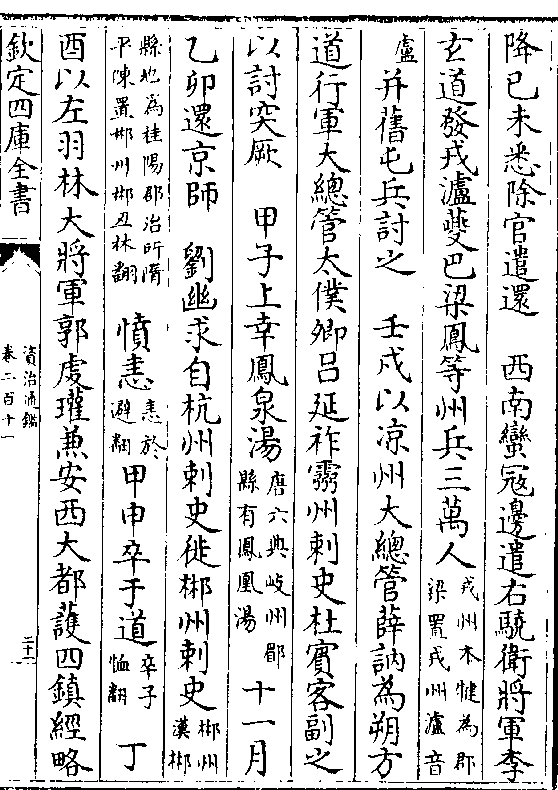 降己未悉除官遣還　西南蠻寇邊遣右驍衛將軍李
𤣥道發戎瀘夔巴梁鳳等州兵三萬人戎州本犍為郡梁置戎州瀘音
盧并舊屯兵討之　壬戌以凉州大總管薛訥為朔方
道行軍大總管太僕卿吕延祚靈州刺史杜賓客副之
以討突厥　甲子上幸鳳泉湯唐六典岐州郿縣有鳳凰湯　十一月
乙卯還京師　劉幽求自杭州刺史徙郴州刺史郴州漢郴
縣也為桂陽郡治所隋平陳置郴州郴丑林翻　憤恚恚於避翻甲申卒于道卒子恤翻　丁
酉以左羽林大將軍郭䖍瓘兼安西大都䕶四鎮經略
欽定四庫全書
資治通鑑
卷二百十一
二十一